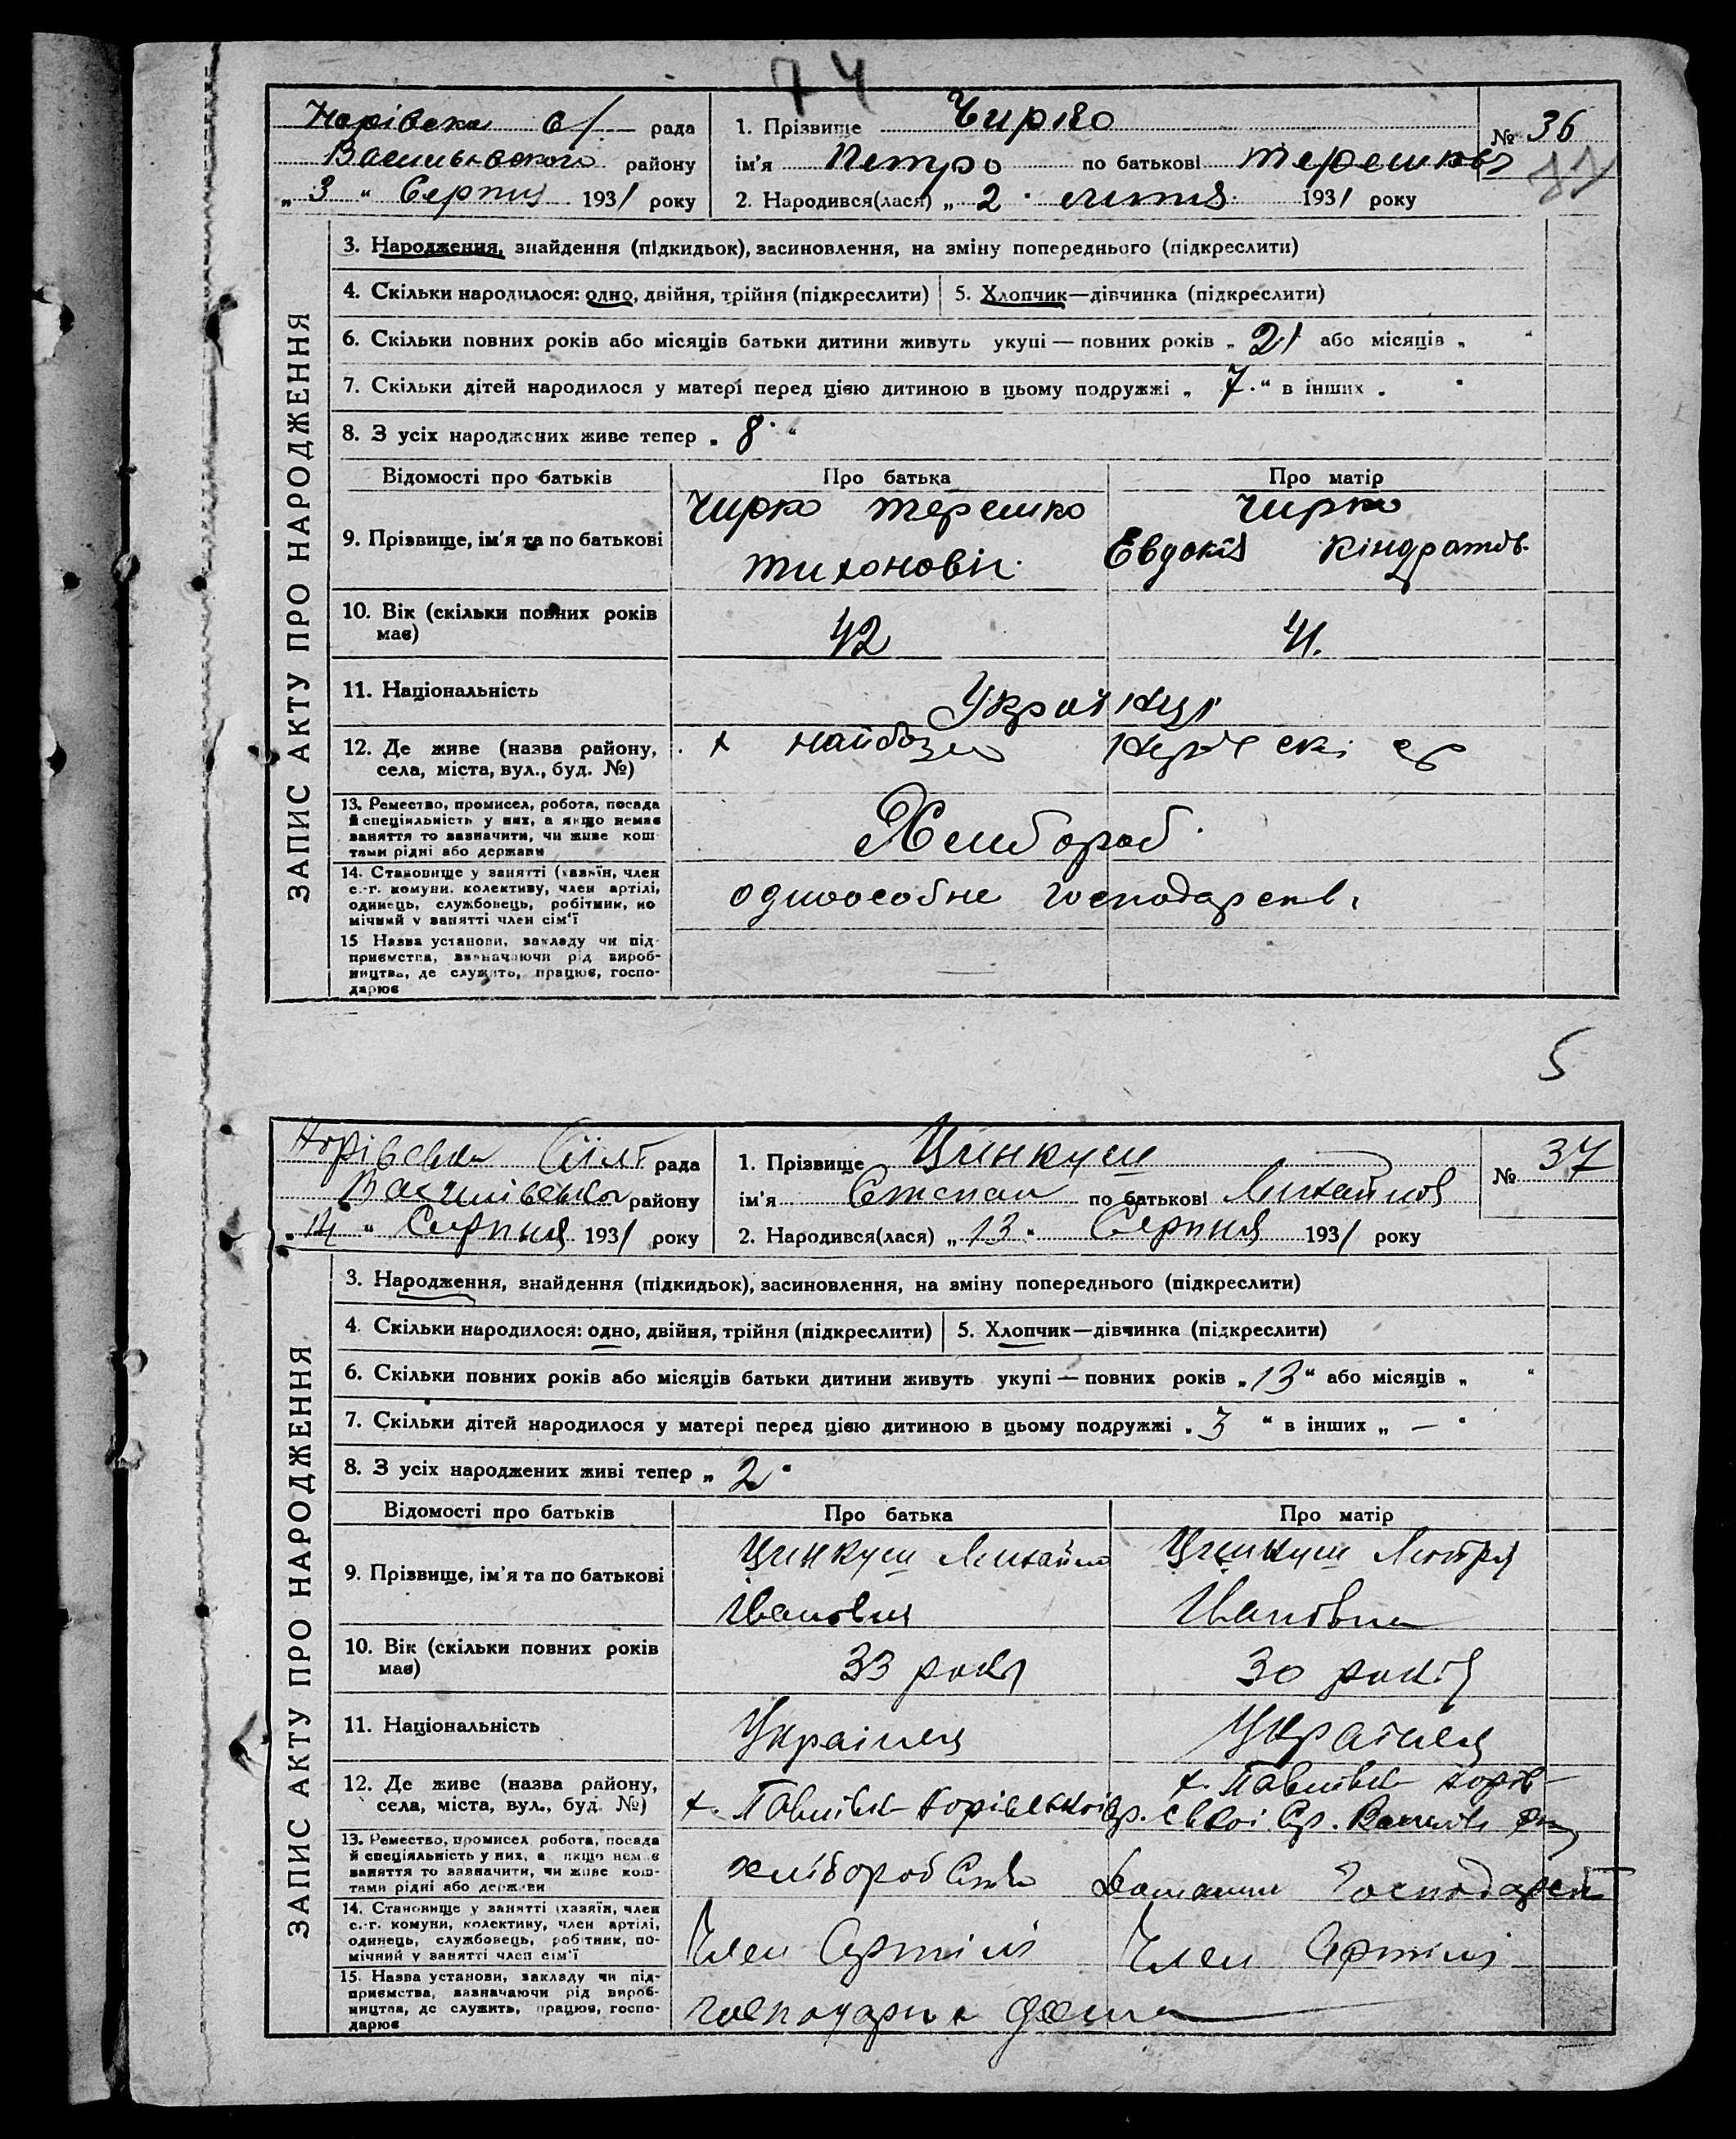 74
Норівська с/ рада
Васильвского району
„ 3 “ Серпня 1931 року
1. Прізвище Чирко
ім'я Петро по батькові Терешков
2. Народився(лася) „ 2 “ липня 1931 року
№ 36
ЗАПИС АКТУ ПРО НАРОДЖЕННЯ
3. Народження, знайдення (підкидьок), засиновлення, на зміну попереднього (підкреслити)
4. Скільки народилося: одно, двійня, трійня (підкреслити) 5. Хлопчик—дівчинка (підкреслити)
6. Скільки повних років або місяців батьки дитини живуть укупі — повних років „ 21 або місяців „ “
7. Скільки дітей народилося у матері перед цією дитиною в цьому подружжі „ 7 “ в інших „ “
8. З усіх народжених живе тепер „ 8 “
Відомості про батьків Про батька Про матір
9. Прізвище, ім'я та по батькові
Чирко Терешко
Тихонович
Чирко
Евдокія Кіндратів.
10. Вік (скільки повних років має) 42 41.
11. Національність Українці
12. Де живе (назва району,
села, міста, вул., буд. №)
13. Ремество, промисел, робота, посада
й спеціяльність у них, а якщо немає
заняття то зазначити, чи живе кош-
тами рідні або держави
Хлібороб
14. Становище у занятті (хазяїн, член
с.-г. комуни, колективу, член артілі,
одинець, службовець, робітник, по-
мічний у занятті член сім'ї
одноособне господарств
15 Назва установи, закладу чи під-
приємства, зазначаючи рід вироб-
ництва, де служить, працює, госпо-
дарює
5
Норівська Сільс рада
Васильівського району
„ 14 “ Серпня 1931 року
1. Прізвище Цинкуш
ім'я Степан по батькові Михайлов
2. Народився(лася) „ 13 “ Серпня 1931 року
№ 37
ЗАПИС АКТУ ПРО НАРОДЖЕННЯ
3. Народження, знайдення (підкидьок), засиновлення, на зміну попереднього (підкреслити)
4. Скільки народилося: одно, двійня, трійня (підкреслити) 5. Хлопчик—дівчинка (підкреслити)
6. Скільки повних років або місяців батьки дитини живуть укупі — повних років „ 13 “ або місяців „ “
7. Скільки дітей народилося у матері перед цією дитиною в цьому подружжі „ 3 “ в інших „ — “
8. З усіх народжених живі тепер „ 2 “
Відомості про батьків Про батька Про матір
9. Прізвище, ім'я та по батькові
Цинкуш Михайло
Іванович
Цинкуш Мотря
Івановна
10. Вік (скільки повних років має) 33 роки 30 років
11. Національність Українець Українец
12. Де живе (назва району,
села, міста, вул., буд. №)
х. Павлівка Норівської
х. Павлівка Норів-
ської
13. Ремество, промисел, робота, посада
й спеціяльність у них, а якщо немає
заняття то зазначити, чи живе кош-
тами рідні або держави
хліборобство
Домашнє Господарств
14. Становище у занятті (хазяїн, член
с.-г. комуни, колективу, член артілі,
одинець, службовець, робітник, по-
мічний у занятті член сім'ї
Член Артілі Член Артілі
15. Назва установи, закладу чи під-
приємства, зазначаючи рід вироб-
ництва, де служить, працює, госпо-
дарює